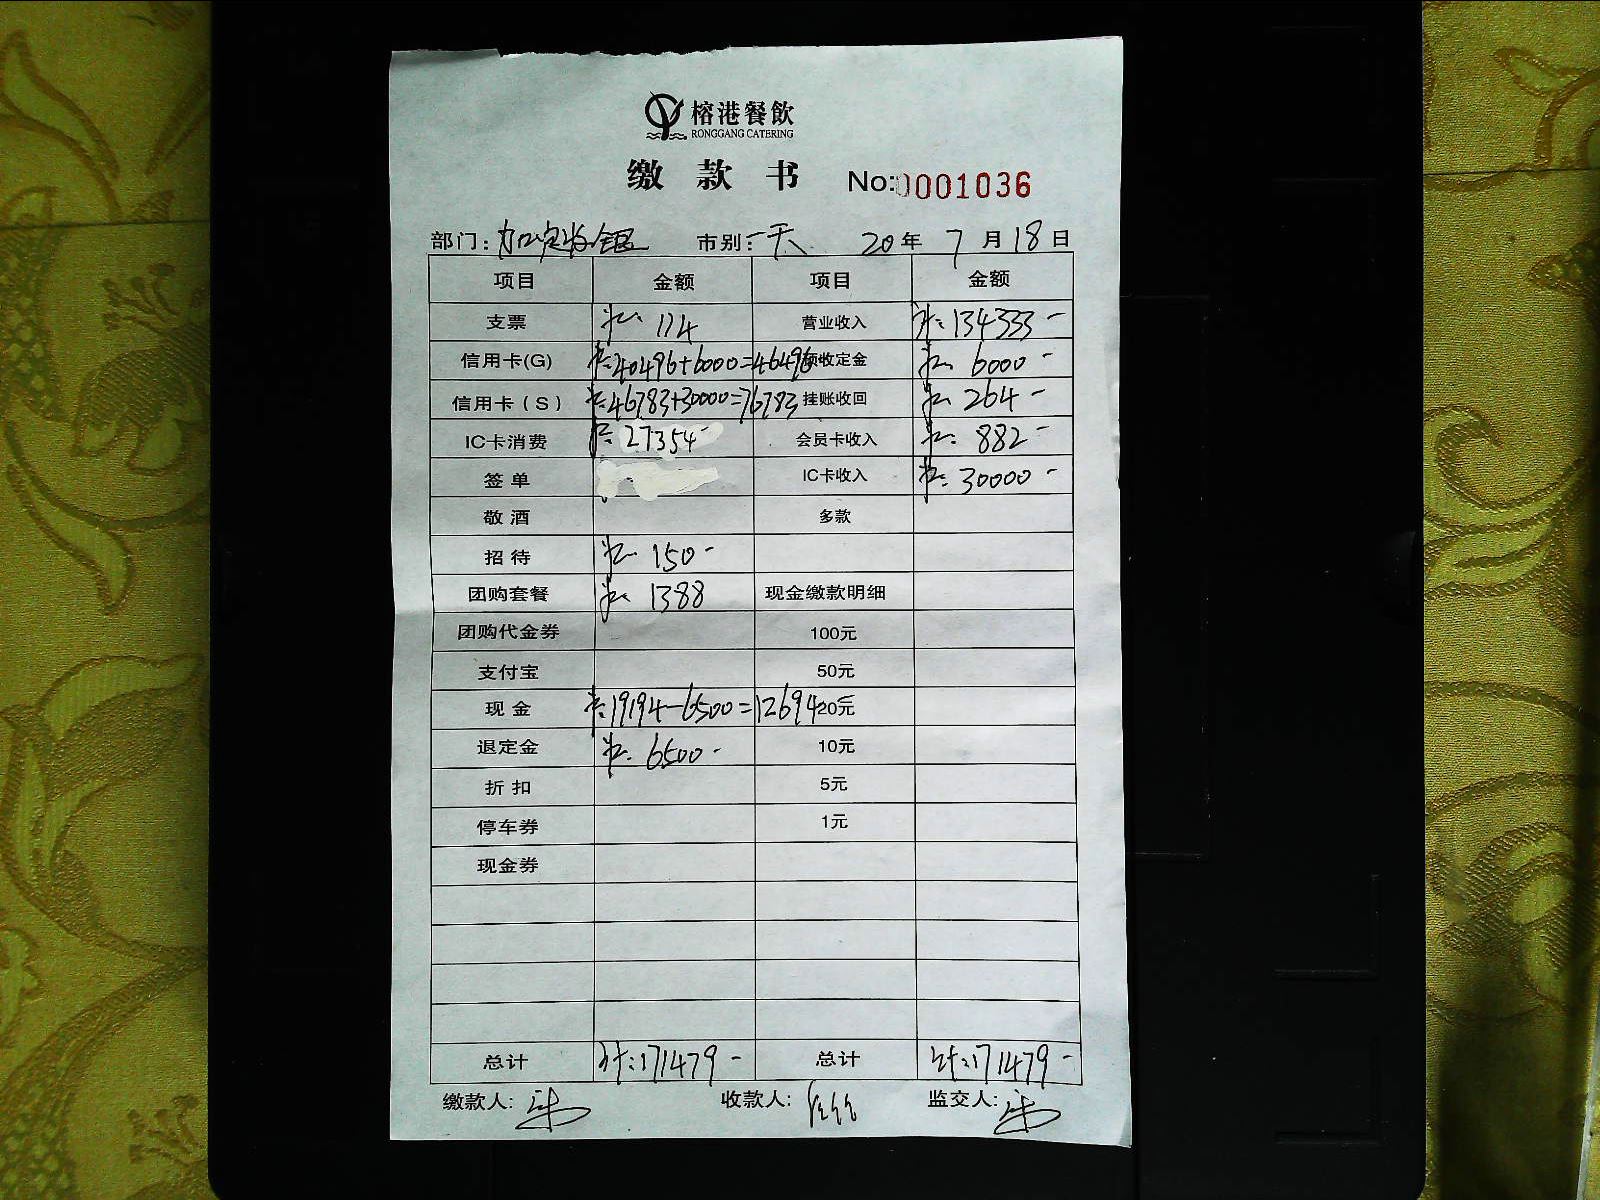 榕港餐飲
RONGGANG CATERING
缴款书 No:0001036
部门: 市别: 一天 20年 7月18日
项目 金额 项目 金额
支票 114 营业收入 134333-
信用卡(G) 40496+6000=46496 预收定金 6000-
信用卡(S) 46783+30000=76783 挂账收回 264-
IC卡消费 27354- 会员卡收入 882-
签单 IC卡收入 30000-
敬酒 多款
招待 150-
团购套餐 1388 现金缴款明细
团购代金券 100元
支付宝 50元
现金 19194-6500=12694 20元
退定金 6500- 10元
折扣 5元
停车券 1元
现金券
总计 计:171479- 总计 计:171479-
缴款人: 收款人: 监交人: